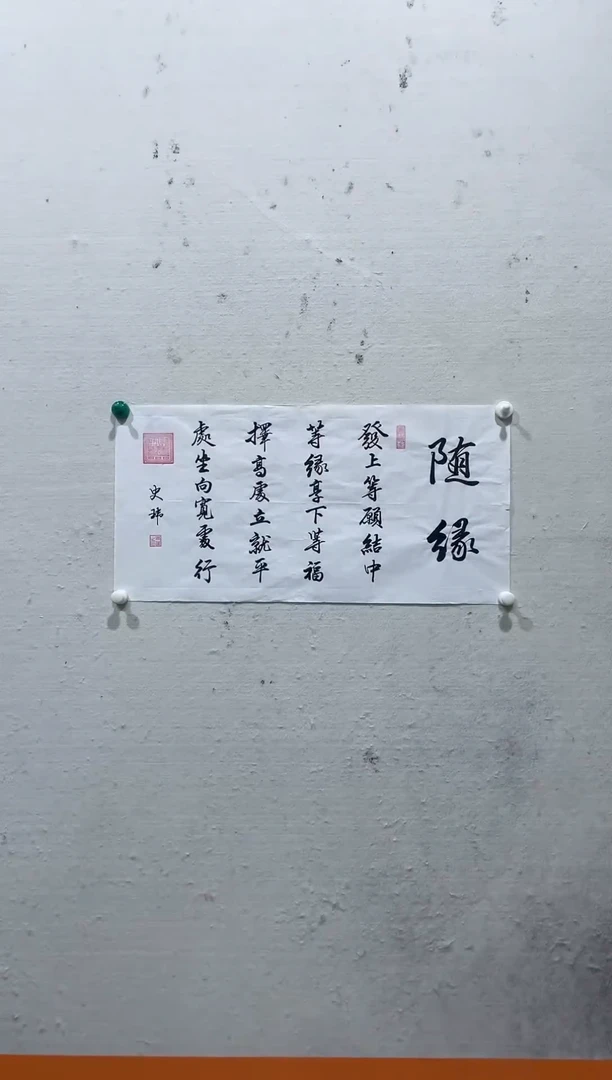 随缘
發上等願結中
等缘享下等福
擇高處立就平
處坐向寬處行
史祎